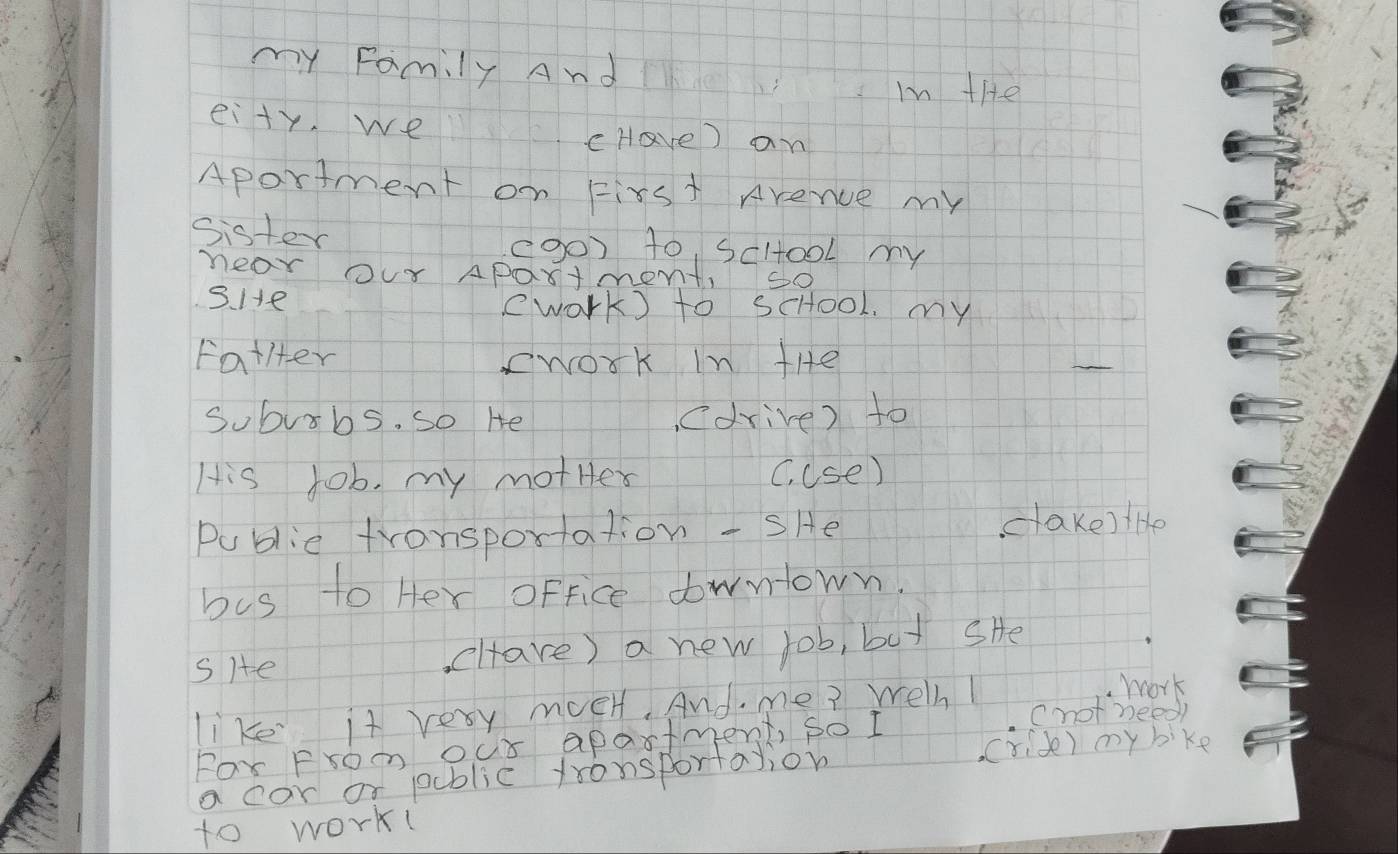 my Family And in the
city. We (Have) an
Apartment on First Avenue my
Sister (go) to school my
near our Apartment, so
SHe (walk) to scHool. my
FatHer (work in tHe
suburbs. so He (drive) to
His job. my motHer (use)
Public transportation - sHe (take) tHe
bus to Her office downtown.
sHe (Have) a new job, but sHe
like it very mucH. And me? Well I work
Far From our apartment, so I (not need)
a car or public transportation (ride) my bike
to work!